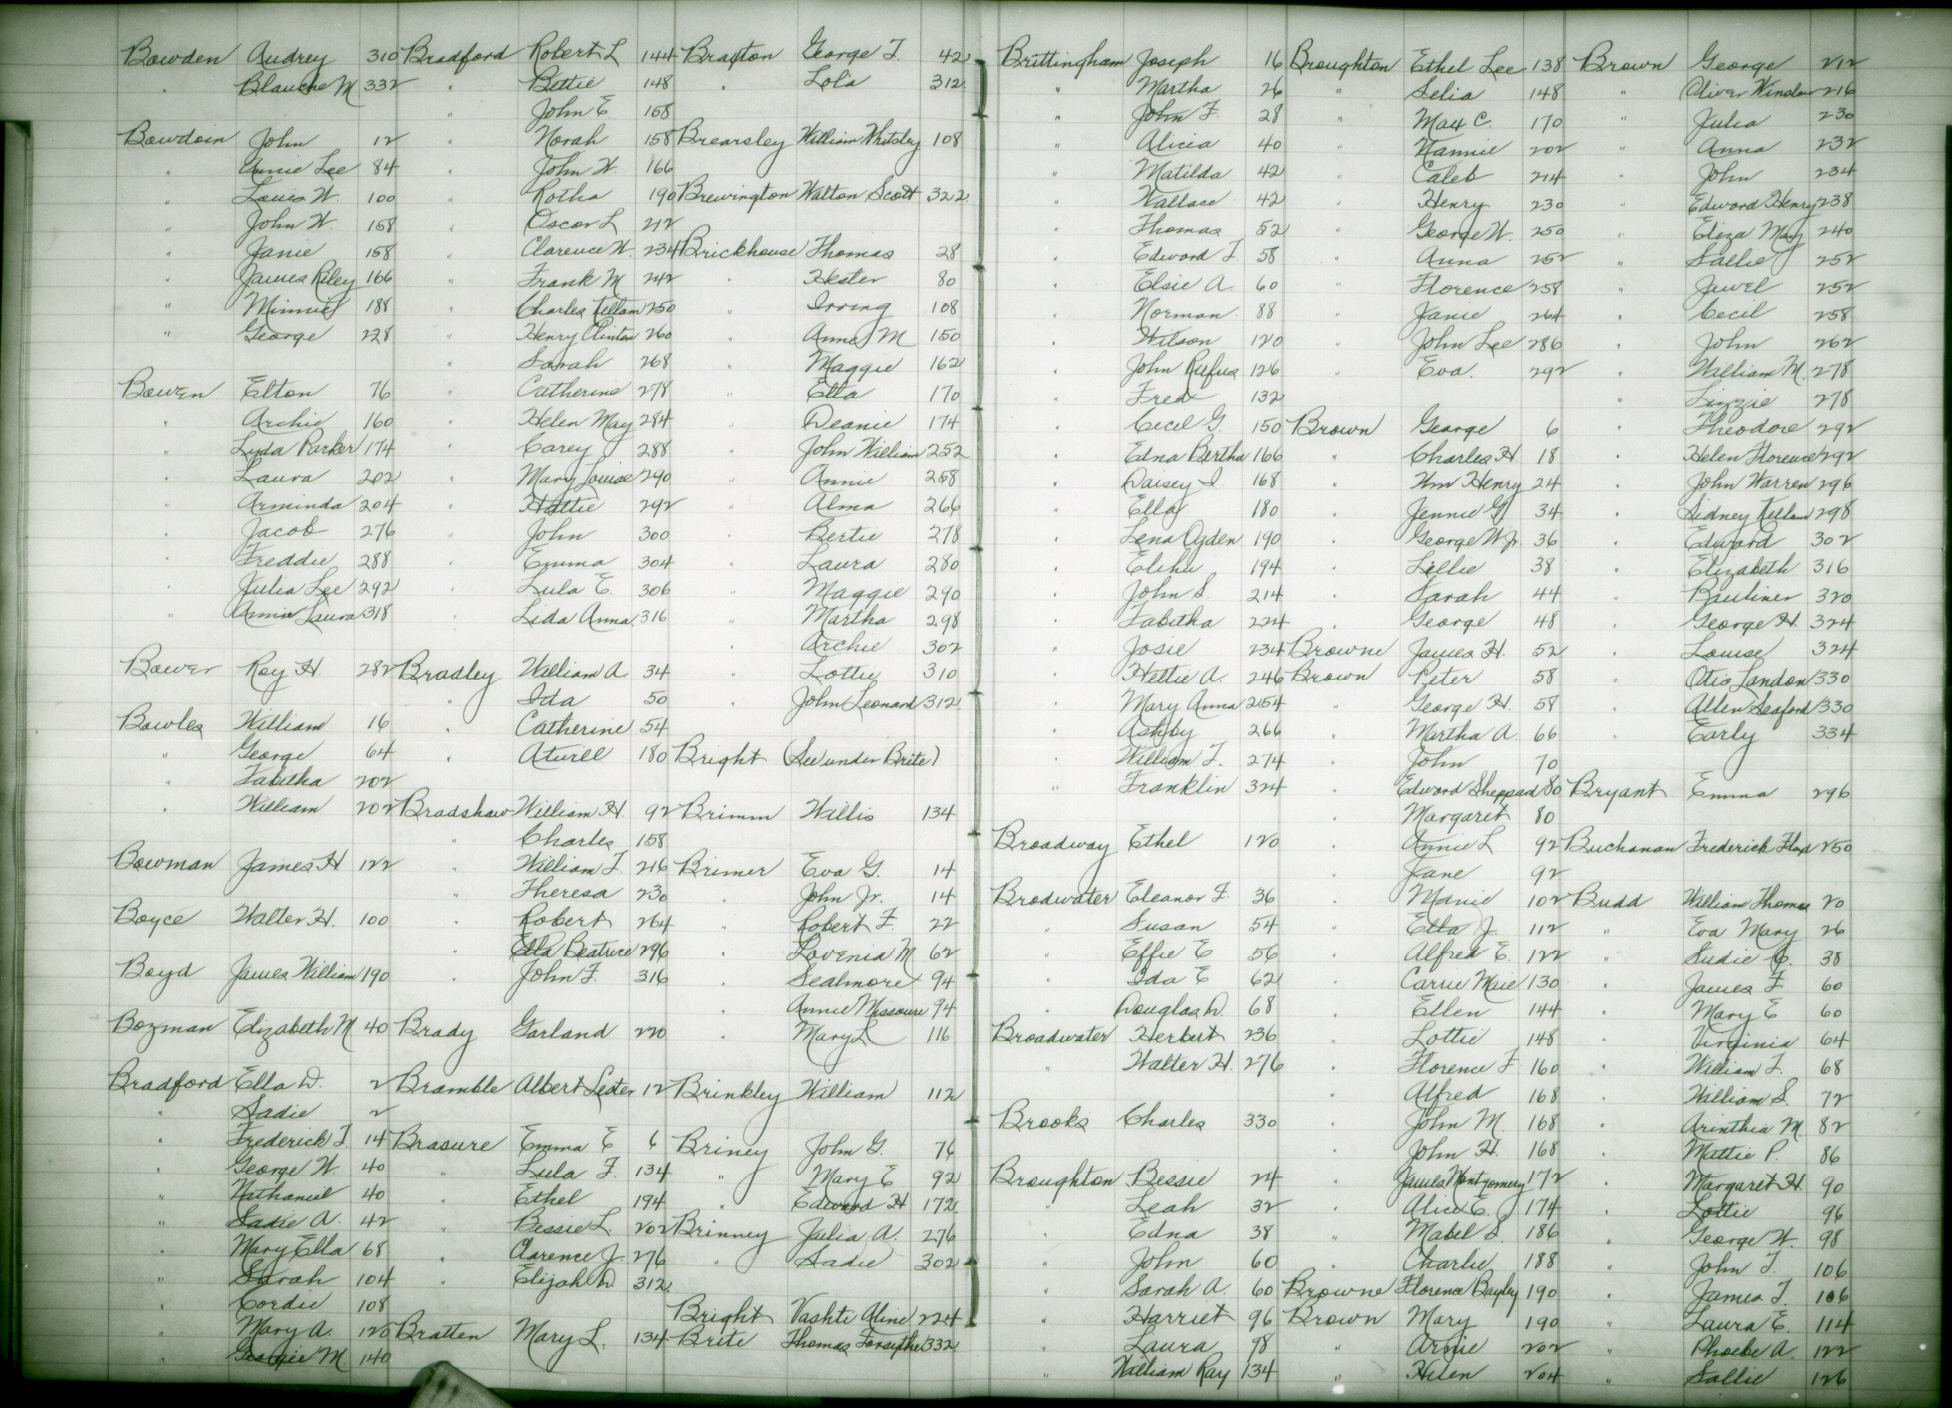 Bowden Audrey 310
" Blanche M 332
Bowdoin John 12
" Annie Lee 84
" Louis W. 100
" John W. 158
" Janie 158
" James Riley 166
" Minnie 188
" George 228
Bowen Elton 76
" Archie 160
" Lyda Parker 174
" Laura 202
" Arminda 204
" Jacob 276
" Freddie 288
" Julia Lee 292
" Annie Laura 318
Bower Roy H. 282
Bowles William 16
" George 64
" Tabitha 202
" William 202
Bowman James H 122
Boyce Walter H. 100
Boyd James William 190
Bozman Elizabeth M 40
Bradford Ella D. 2
" Sadie 2
" Frederick T. 14
" George W. 40
" Nathaniel 40
" Sadie A. 42
" Mary Ella 68
" Sarah 104
" Cordie 108
" Mary A. 120
" Georgie M. 140
Bradford Robert L 144
" Bettie 148
" John E. 158
" Norah 158
" John W. 166
" Rotha 190
" Oscar L 212
" Clarence W. 234
" Frank M 242
" Charles Kellam 250
" Henry Clinton 260
" Sarah 268
" Catherine 278
" Helen May 284
" Carey 288
" Mary Louise 290
" Hattie 292
" John 300
" Emma 304
" Lula E. 306
" Lida Anna 316
Bradley William A. 34
" Ida 50
" Catherine 54
" Aturell 180
Bradshaw William H. 92
" Charles 158
" William T. 216
" Theresa 230
" Robert 264
" Ella Beatrice 296
" John F. 316
Brady Garland 220
Bramble Albert Lester 12
Brasure Emma E 6
" Lula F. 134
" Ethel 194
" Bessie L 202
" Clarence J. 276
" Elijah D. 312
Bratten Mary L. 134
Braxton George T. 42
" Lola 312
Brearsley William Whitsley 108
Brewington Walton Scott 322
Brickhouse Thomas 28
" Hester 80
" Irving 108
" Anna M 150
" Maggie 162
" Ella 170
" Deanie 174
" John William 252
" Annie 258
" Alma 266
" Bertie 278
" Laura 280
" Maggie 290
" Martha 298
" Archie 302
" Lottie 310
" John Leonard 312
Bright (See under Brite)
Brimm Willis 134
Brimer Eva G. 14
" John Jr. 14
" Robert F. 22
" Lovenia M 62
" Sealmore 94
" Annie Missouri 94
" Mary L 116
Brinkley William 112
Briney John G. 76
" Mary E 92
" Edward H 172
Brinney Julia A. 276
" Sadie 302
Bright Vashti Aline 224
Brite Thomas Forsythe 332
Brittingham Joseph 16
" Martha 26
" John F. 28
" Alicia 40
" Matilda 42
" Wallace 42
" Thomas 52
" Edward T 58
" Elsie A. 60
" Norman 88
" Wilson 120
" John Rufus 126
" Fred 132
" Cecil G. 150
" Edna Bertha 166
" Daisey I. 168
" Ella 180
" Lena Ogden 190
" Elihu 194
" John S. 214
" Tabitha 224
" Josie 234
" Hettie A. 246
" Mary Anna 254
" Ashby 266
" William T. 274
" Franklin 324
Broadway Ethel 120
Brodwater Eleanor F 36
" Susan 54
" Effie E 56
" Ida E 62
" Douglas D. 68
Broadwater Herbert 236
" Walter H. 276
Brooks Charles 330
Broughton Bessie 24
" Leah 32
" Edna 38
" John 60
" Sarah A. 60
" Harriet 96
" Laura 98
" William Ray 134
Broughton Ethel Lee 138
" Selia 148
" May C. 170
" Nannie 202
" Caleb 214
" Henry 230
" George W. 250
" Anna 252
" Florence 258
" Janie 264
" John Lee 286
" Eva. 292
Brown George 6
" Charles H 18
" Wm Henry 24
" Jennie G 34
" George W Jr. 36
" Lillie 38
" Sarah 44
" George 48
Browne James H. 52
Brown Peter 58
" George H. 58
" Martha A. 66
" John 70
" Edward Sheppard 80
" Margaret 80
" Annie L 92
" Jane 92
" Manie 102
" Etta J. 112
" Alfred E. 122
" Carrie Mae 130
" Ellen 144
" Lottie 148
" Florence F 160
" Alfred 168
" John M. 168
" John H. 168
" James Montgomery 172
" Alice E. 174
" Mabel S. 186
" Charlie 188
Browne Florence Bayley 190
Brown Mary 190
" Arnie 202
" Helen 204
Brown George 212
" Oliver Winslow 216
" Julia 230
" Anna 232
" John 234
" Edward Henry 238
" Eliza May 240
" Sallie 252
" Jewel 252
" Cecil 258
" John 262
" William M. 278
" Lizzie 278
" Theodore 292
" Helen Florence 292
" John Warren 296
" Sidney Kellam 298
" Edward 302
" Elizabeth 316
" Pauliner 320
" George H. 324
" Louise 324
" Otis Landon 330
" Allen Seaford 330
" Early 334
Bryant Emma 296
Buchanan Frederick Floyd 250
Budd William Thomas 20
" Eva Mary 26
" Sudie C. 38
" James F 60
" Mary E 60
" Virginia 64
" William T. 68
" William S. 72
" Arinthia M. 82
" Mattie P. 86
" Margaret H. 90
" Lottie 96
" George W. 98
" John T. 106
" James T. 106
" Laura E. 114
" Phoebe A. 122
" Sallie 126